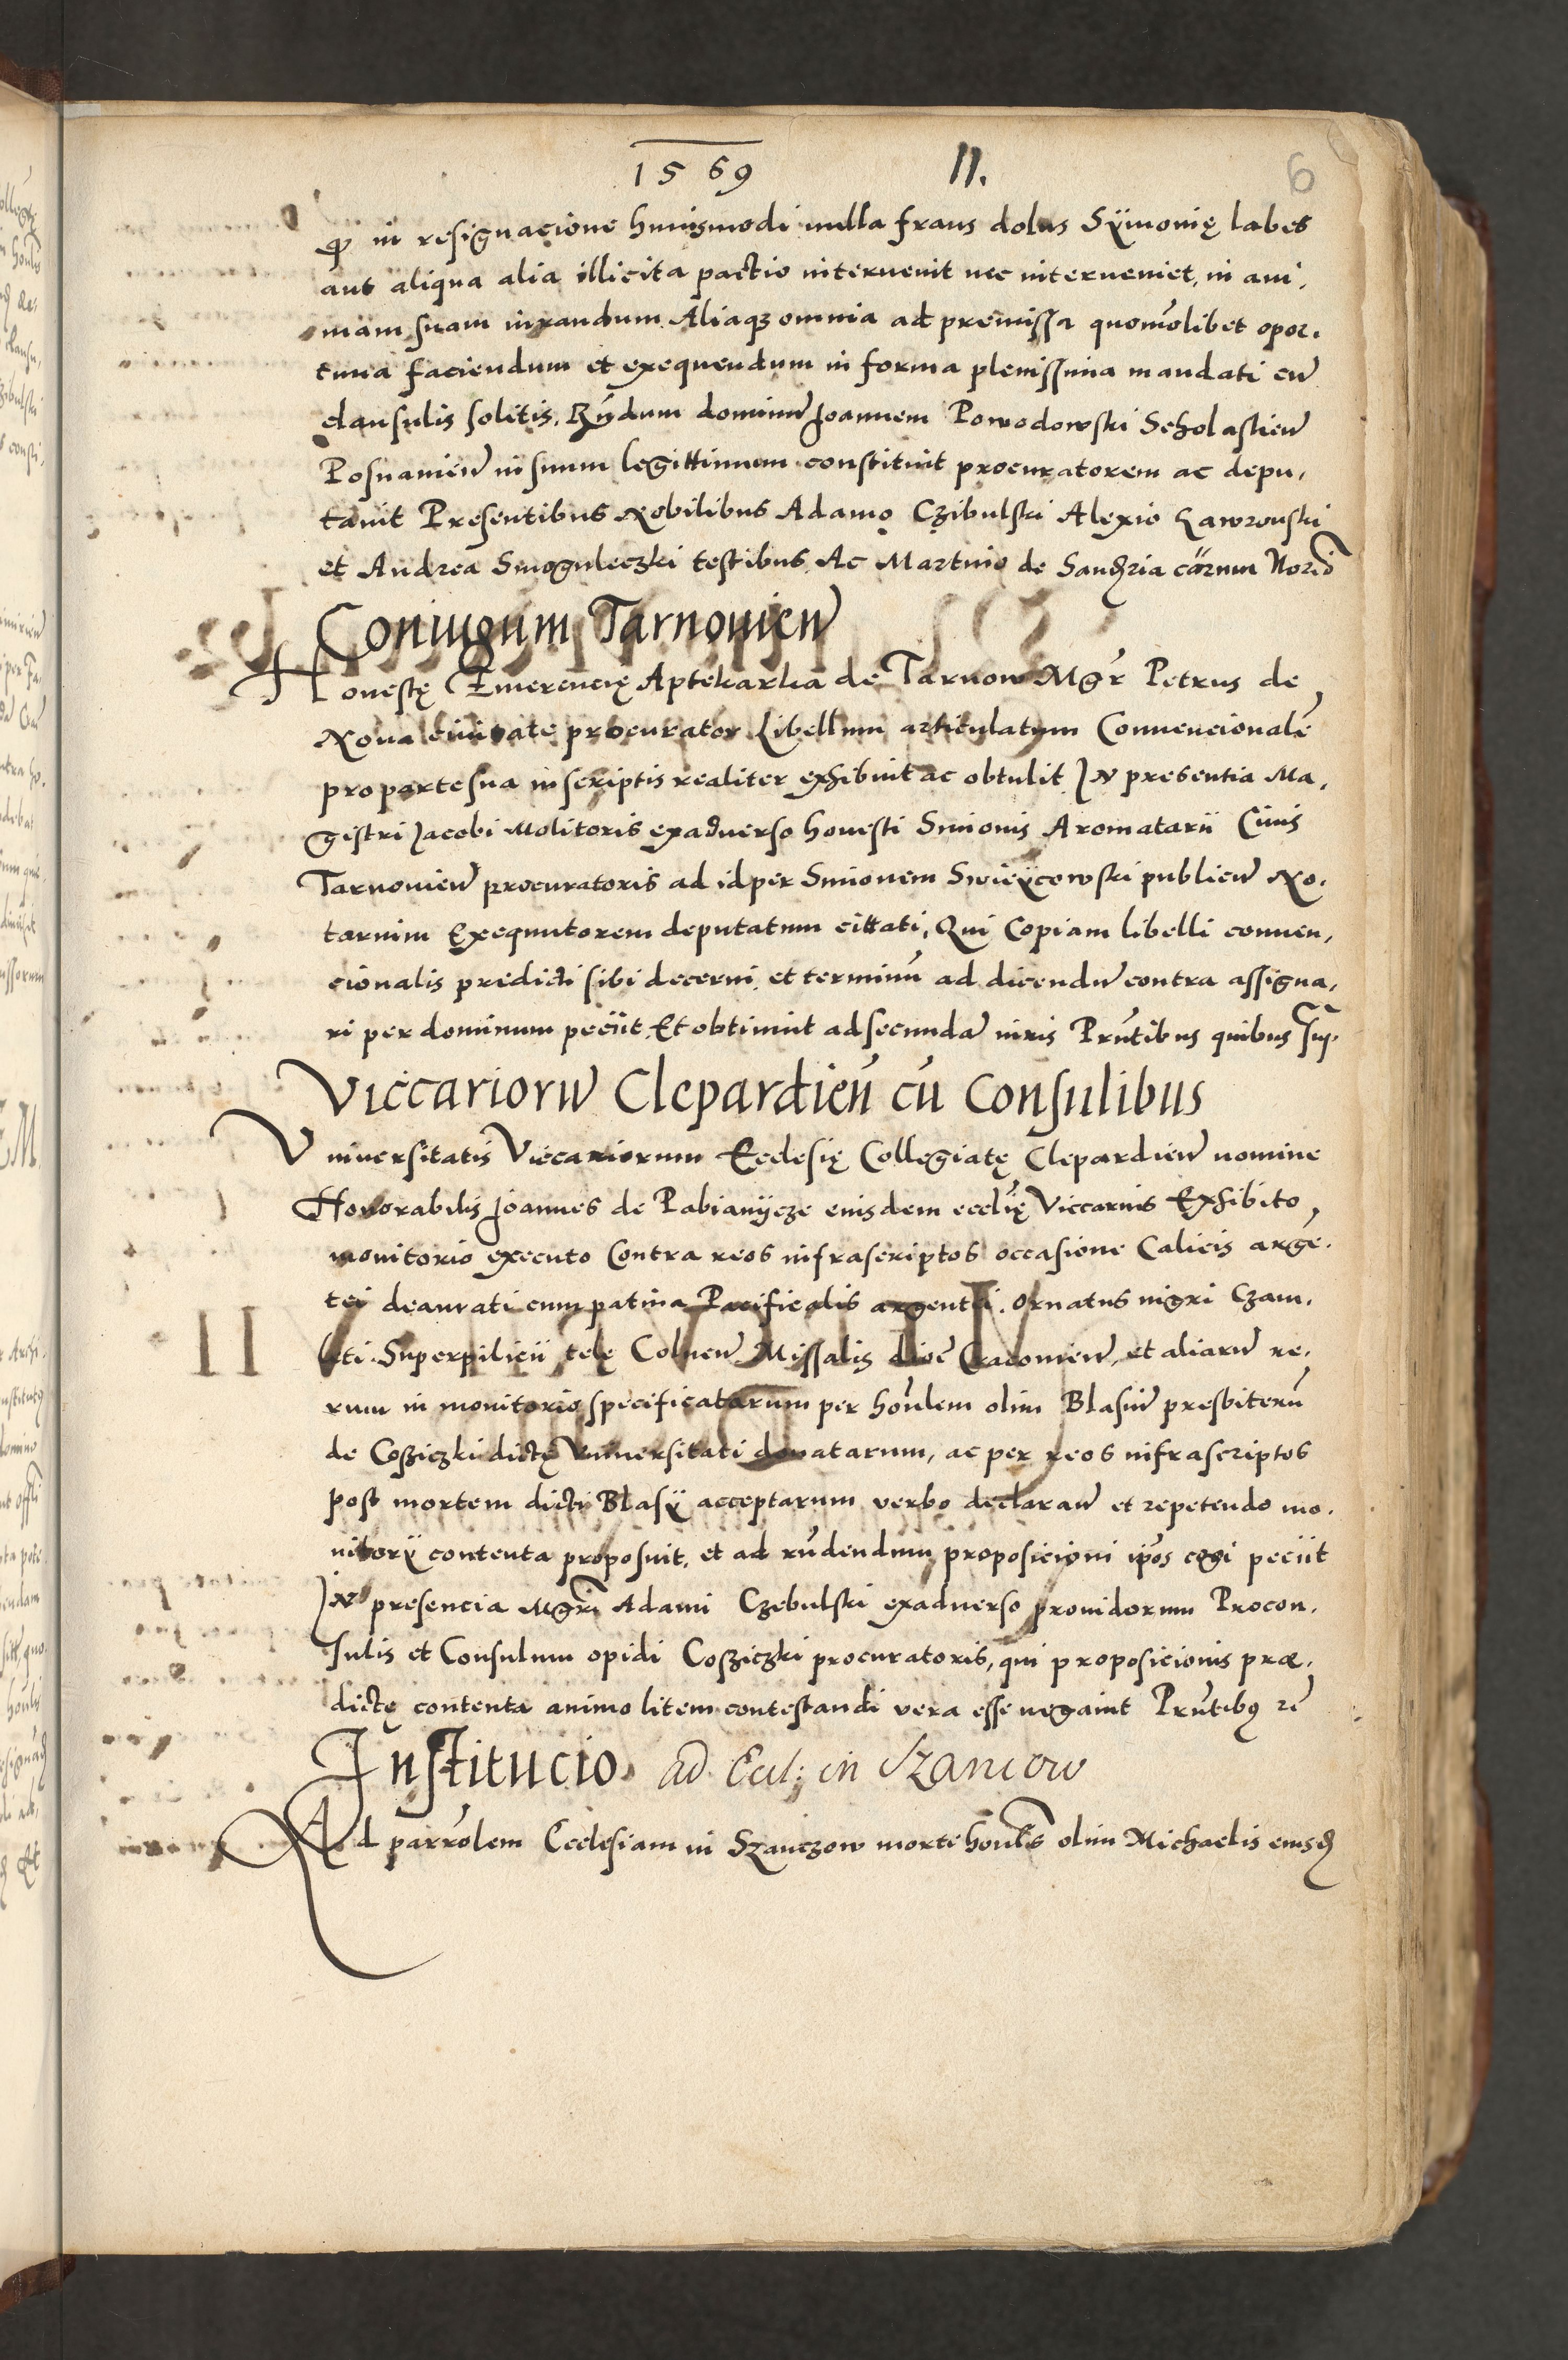 1569 11. 6
qȝ in resignacione huiusmodi nulla fraus dolus Sÿmonię labes
aut aliqua alia illicita pactio interuenit nec interueniet, in ani,
mam suam iurandum. Aliaqȝ omnia ad premissa quomo͂libet opor,
tuna faciendum et exequendum in forma plenissima mandati cu͂
clausulis solitis. Rn͂dum dominu͂ Joannem Powodowski Scholasticu͂
Posnanien͂ in suum legittimum constituit procuratorem ac depu,
tauit Presentibus Nobilibus Adamo Czibulski Alexio Lawrowski
et Andrea Smoguleczki testibus. Ac Martino de
Coniugum Tarnouien͂
Honestę Emerencię Aptekarka de Tarnow Mgr͂ Petrus de
Noua ciuitate procurator Libellum articulatum Conuencionale͂
pro parte sua in scriptis realiter exhibuit ac obtulit. In presentia Ma,
gistri Jacobi Molitoris exaduerso honesti Simonis Aromatarii Ciuis
Tarnouien͂ procuratoris ad id per Simonem Swieÿcowski publicu͂ No,
tarium Exequutorem deputatum cittati, Qui Copiam libelli conuen,
cionalis predicti sibi decerni, et terminu͂ ad dicendu͂ contra assigna,
ri per dominum peciit. Et obtinuit ad secunda͂ iuris Prn͂tibus quibus sup͂
Viccarioru͂ Clepardien͂ cu͂ Consulibus
Vniuersitatis Viccariorum Ecclesię Collegiatę Clepardien͂ nomine
Honorabilis Joannes de Pabianijcze eiusdem eccl͂ię Viccarius Exhibito,
monitorio executo Contra reos infrascriptos occasione Calicis arge͂,
tei deaurati cum patina Pacificalis argentei, Ornatus nigri Czam,
leti Superpilicii telę Colnen͂ Missalis dioc͂ Cracouien͂, et aliaru͂ re,
rum in monitorio specificatarum per hon͂lem olim Blasiu͂ presbiteru͂
de Cosziczki dictę Vniuersitati donatarum, ac per reos infrascriptos
post mortem dicti Blasÿ acceptarum verbo declaran͂ et repetendo mo,
nitorÿ contenta proposuit, et ad rn͂dendum proposicioni ip͂os cogi peciit
In presencia Mgr͂i Adami Czebulski exaduerso prouidorum Procon,
sulis et Consulum opidi Cosziczki procuratoris, qui proposicionis præ,
dictę contenta animo litem contestandi vera esse negauit Prn͂tibȝ
Institucio ad Eccl: in Szaniow
Ad parro͂lem Ecclesiam in Szanczow morte hon͂lis olim Michaelis eiusd͂